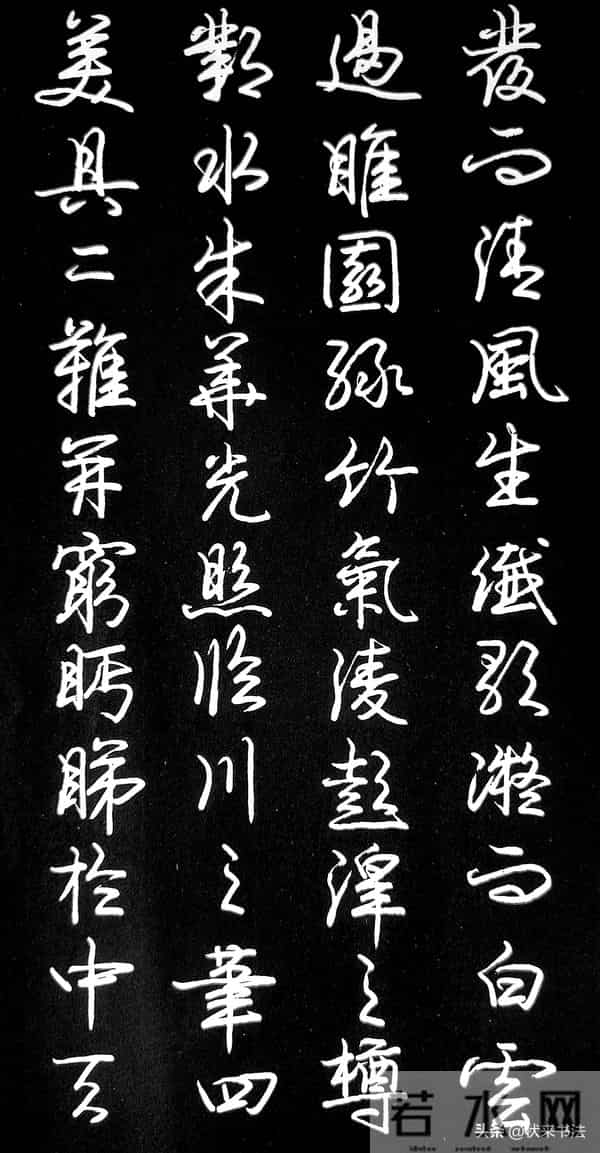 發而清風生纖歌凝而白雲
遏睢園綠竹氣淩彭澤之樽
鄴水朱華光照臨川之筆四
美具二難并窮眄睇於中天
若水网
头条@伏来书法